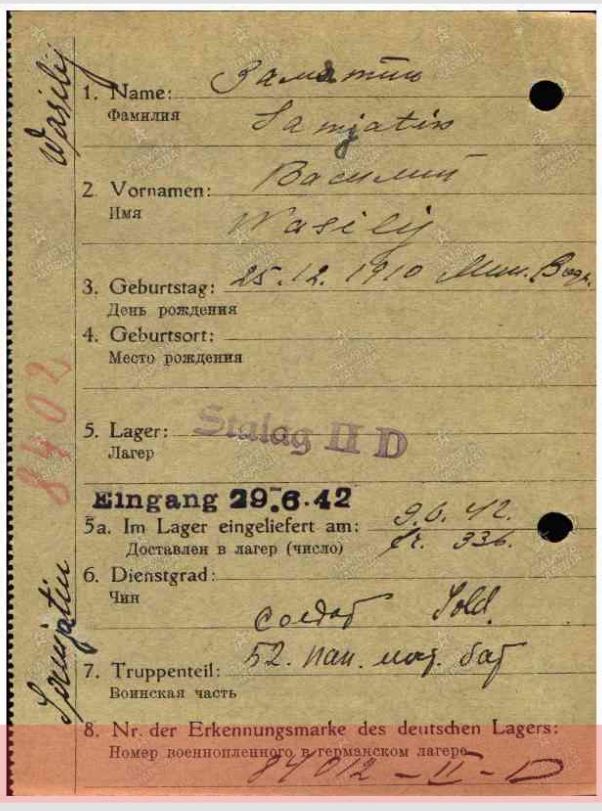 Wasilij
1. Name: Заматин
Фамилия
Samjatin
2. Vornamen: Василий
Имя
Wasilij
3. Geburtstag: 25.12.1910
День рождения
4. Geburtsort:
Место рождения
8402
5. Lager: Stalag II D
Лагер
Eingang 29.6.42
5a. Im Lager eingeliefert am: 9.6.42.
Доставлен в лагер (число) 336.
6. Dienstgrad:
Чин
солдат Sold.
Samjatin
7. Truppenteil: 52.
Воинская часть
8. Nr. der Erkennungsmarke des deutschen Lagers:
Номер военнопленного в германском лагере
84012 - II - D